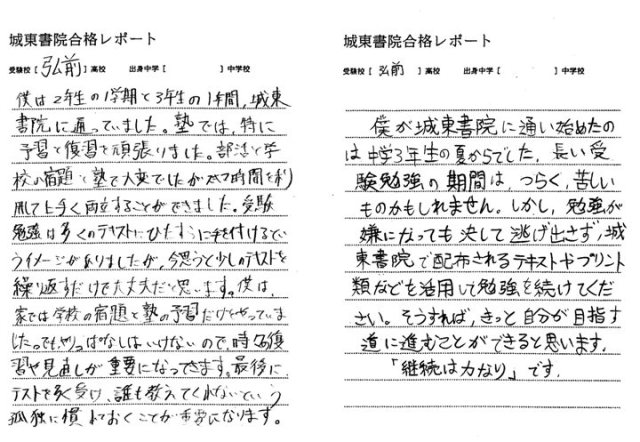 城東書院合格レポート
受験校 [ 弘前 ] 高校 出身中学 [ ] 中学校
僕は2年生の1学期と3年生の1年間,城東
書院に通っていました。塾では,特に
予習と復習を頑張りました。部活と学
校の宿題と塾で大変でしたが 時間を
用して上手く両立することができました。受験
勉強は多くのテキストにひたすらに手を付けるとい
うイメージがありましたが,今思うと少しのテキストを
繰り返すだけで大丈夫だと思います。僕は,
家では学校の宿題と塾の予習だけをやっていま
したっでもやりっぱなしはいけないので,時々復
習や見直しが重要になってきます。最後に,
テストを多く受け,誰も教えてくれないという
孤独に慣れておくことが重要になります。
城東書院合格レポート
受験校 [ 弘前 ] 高校 出身中学 [ ] 中学校
僕が城東書院に通い始めたの
は中学3年生の夏からでした。長い受
験勉強の期間は,つらく,苦しい
ものかもしれません。しかし,勉強が
嫌になっても決して逃げ出さず,城
東書院で配布されるテキストやプリント
類などを活用して勉強を続けてくだ
さい。そうすれば,きっと自分が目指す
道に進むことができると思います。
「継続は力なり」です。